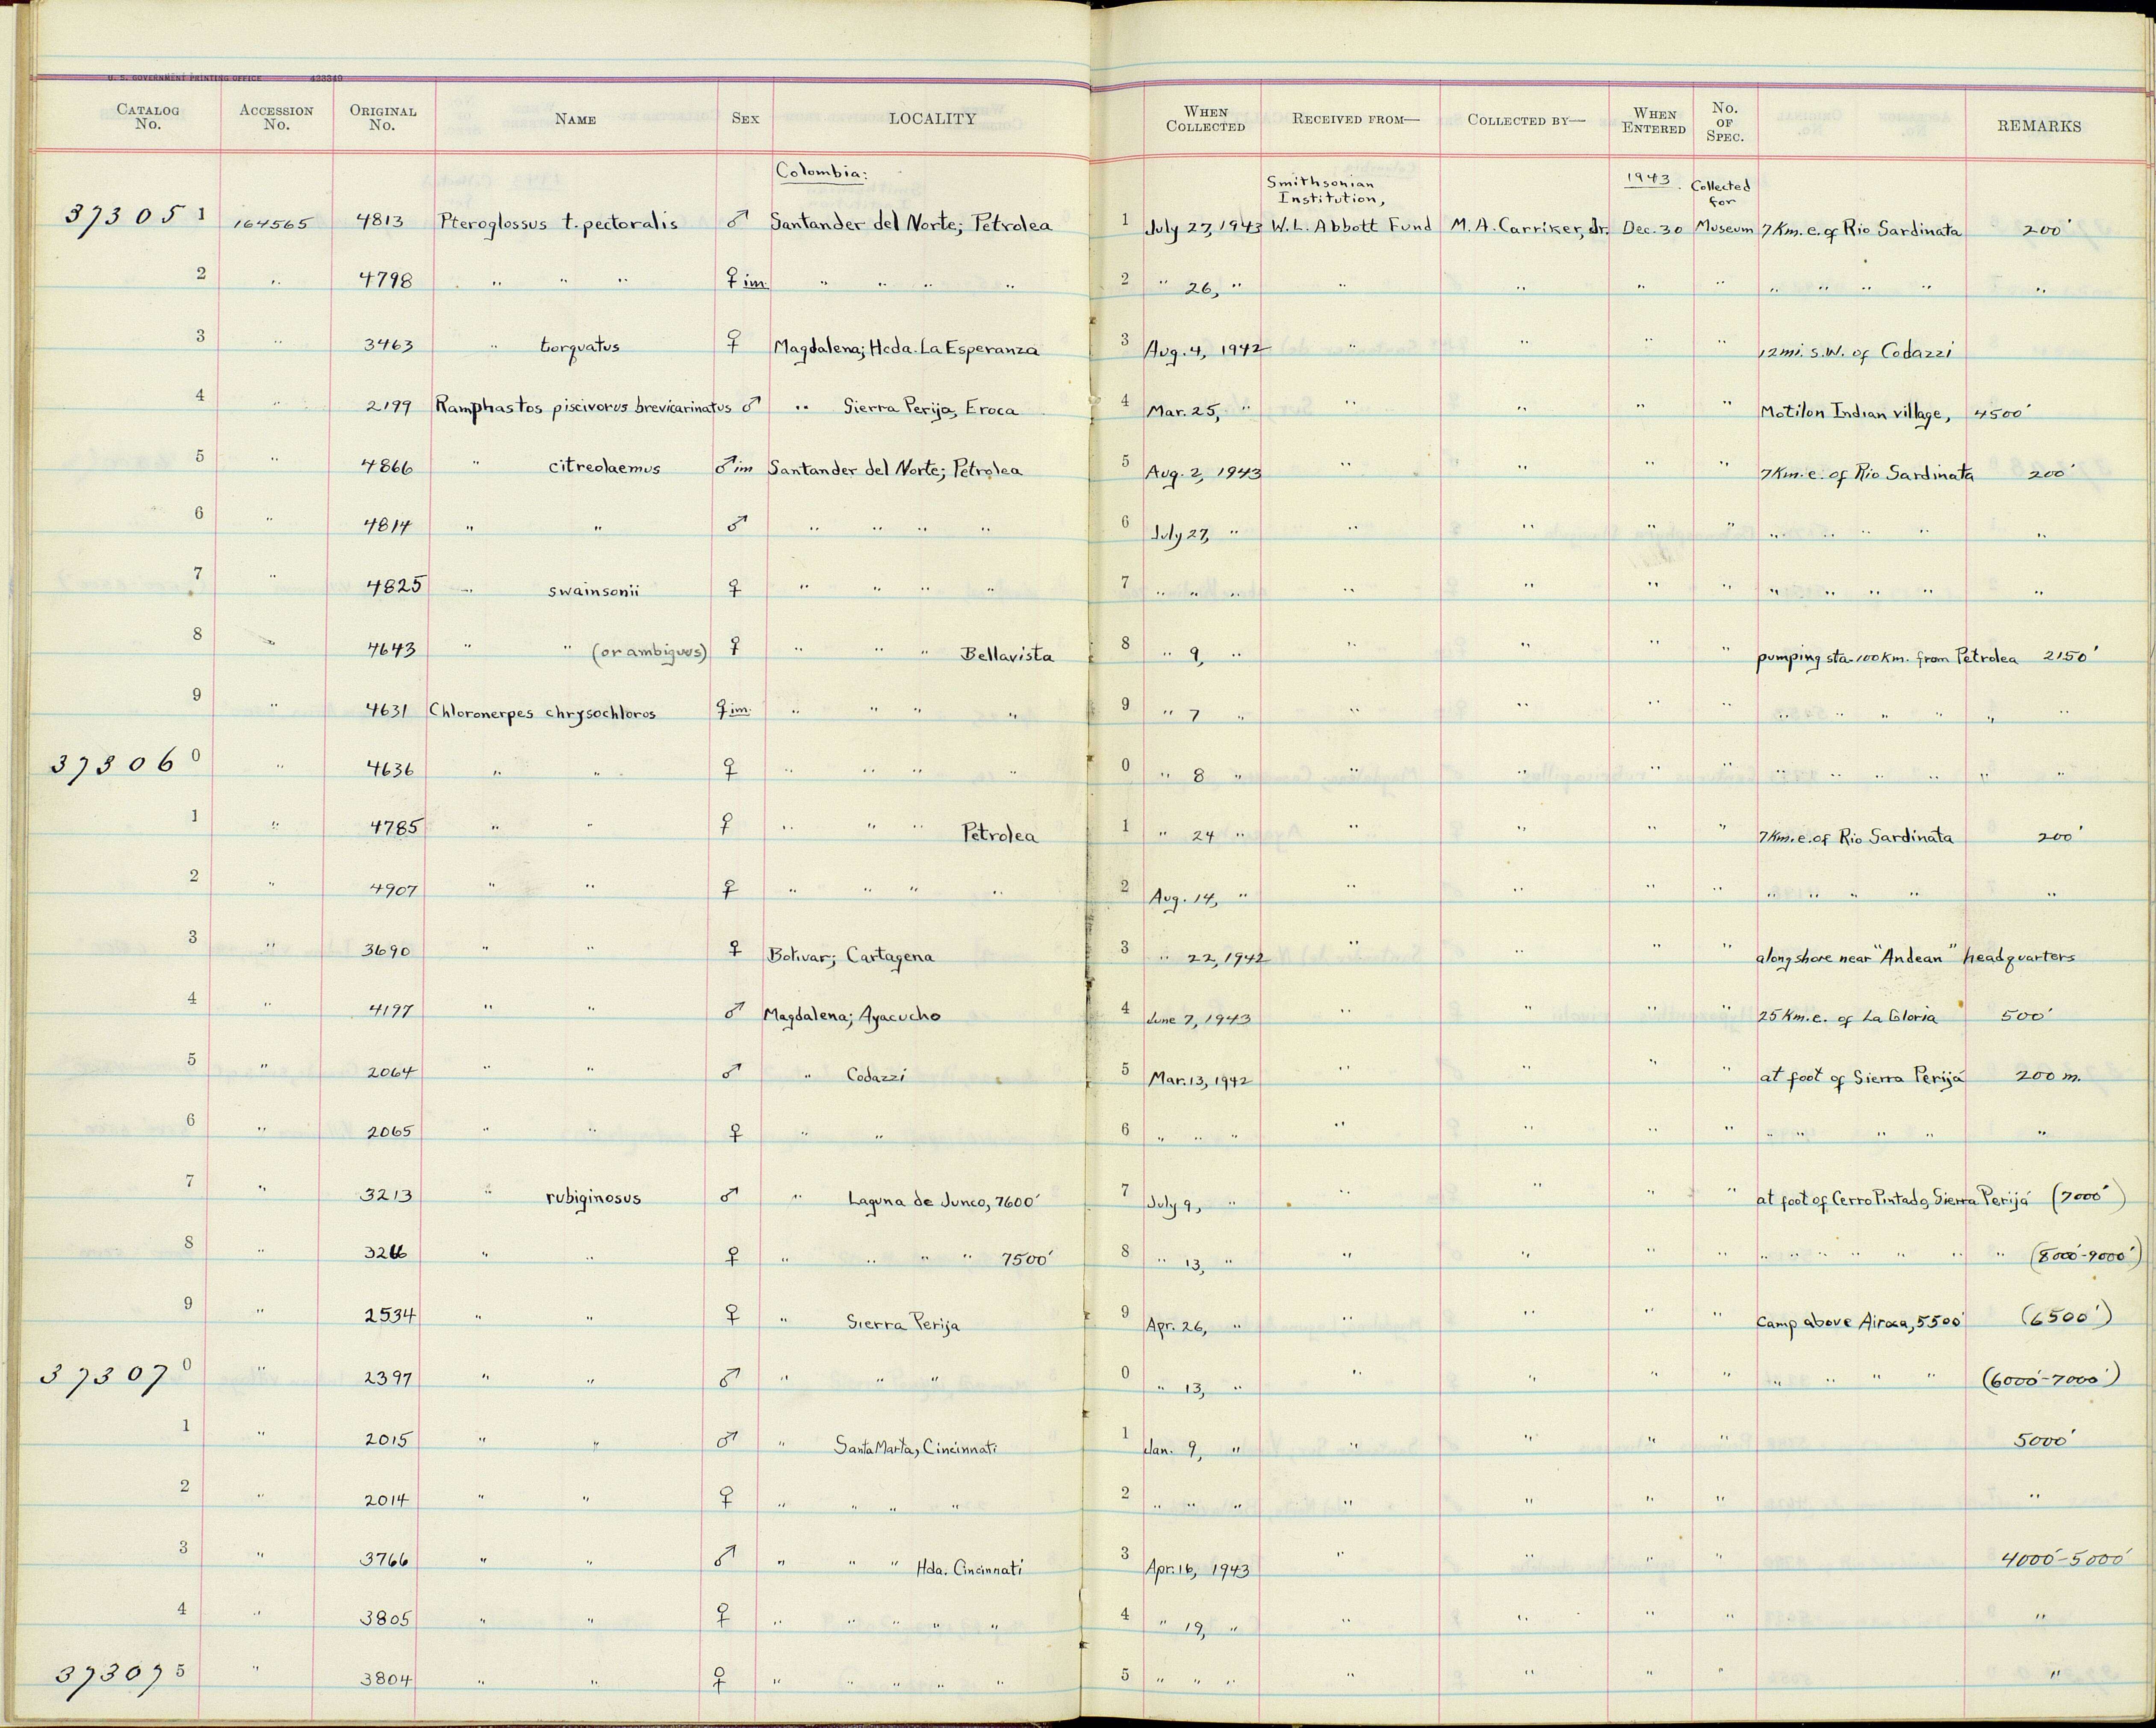 U. S. GOVERNMENT PRINTING OFFICE 423349
CATALOG No. ACCESSION No. ORIGINAL No. NAME SEX LOCALITY WHEN COLLECTED RECEIVED FROM— COLLECTED BY— WHEN ENTERED No. OF SPEC. REMARKS
Colombia: Smithsonian Institution, 1943. Collected for
37305 1 164565 4813 Pteroglossus t. pectoralis ♂ Santander del Norte; Petrolea 1 July 27, 1943 W. L. Abbott Fund M. A. Carriker, Jr. Dec. 30 Museum 7 Km. e. of Rio Sardinata 200'
2 " 4798 " " " ♀ im. " " " " 2 " 26, " " " " " " " " " "
3 " 3463 " torquatus ♀ Magdalena; Hcda. La Esperanza 3 Aug. 4, 1942 " " " " 12 mi. S.W. of Codazzi
4 " 2199 Ramphastos piscivorus brevicarinatus ♂ " Sierra Perija, Eroca 4 Mar. 25, " " " " " Motilon Indian village, 4500'
5 " 4866 " citreolaemus ♂ im Santander del Norte; Petrolea 5 Aug. 2, 1943 " " " " 7 Km. e. of Rio Sardinata 200'
6 " 4814 " " ♂ " " " " 6 July 27, " " " " " " " " " "
7 " 4825 " swainsonii ♀ " " " " 7 " " " " " " " " " " " "
8 " 4643 " " (or ambiguus) ♀ " " " Bellavista 8 " 9, " " " " " pumping sta. 100 Km. from Petrolea 2150'
9 " 4631 Chloronerpes chrysochloros ♀ im. " " " " 9 " 7 " " " " " " " " " " "
37306 0 " 4636 " " ♀ " " " " 0 " 8 " " " " " " " " " " "
1 " 4785 " " ♀ " " " Petrolea 1 " 24 " " " " " 7 Km. e. of Rio Sardinata 200'
2 " 4907 " " ♀ " " " " 2 Aug. 14, " " " " " " " " " "
3 " 3690 " " ♀ Bolivar; Cartagena 3 " 22, 1942 " " " " along shore near "Andean" headquarters
4 " 4197 " " ♂ Magdalena; Ayacucho 4 June 7, 1943 " " " " 25 Km. e. of La Gloria 500'
5 " 2064 " " ♂ " Codazzi 5 Mar. 13, 1942 " " " " at foot of Sierra Perijá 200 m.
6 " 2065 " " ♀ " " 6 " " " " " " " " " " " "
7 " 3213 " rubiginosus ♂ " Laguna de Junco, 7600' 7 July 9, " " " " " at foot of Cerro Pintado, Sierra Perijá (7000')
8 " 3266 " " ♀ " " " " 7500' 8 " 13, " " " " " " " " " " " " (8000-9000')
9 " 2534 " " ♀ " Sierra Perija 9 Apr. 26, " " " " " Camp above Airoca, 5500' (6500')
37307 0 " 2397 " " ♂ " " " 0 " 13, " " " " " " " " " (6000-7000')
1 " 2015 " " ♂ " Santa Marta, Cincinnati 1 Jan. 9, " " " " " 5000'
2 " 2014 " " ♀ " " " " 2 " " " " " " " "
3 " 3766 " " ♂ " " " Hda. Cincinnati 3 Apr. 16, 1943 " " " " 4000-5000'
4 " 3805 " " ♀ " " " " " 4 " 19, " " " " " "
37307 5 " 3804 " " ♀ " " " " " 5 " " " " " " " "